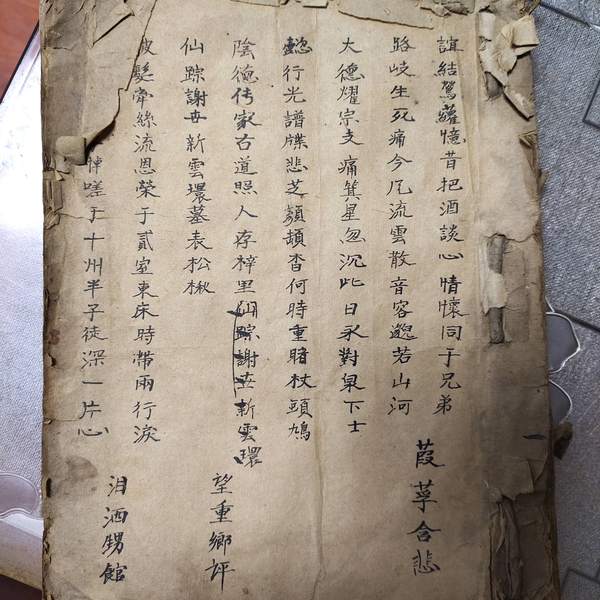 誼結鴛蘿憶昔把酒談心情懷同于兄弟
路岐生死痛今凥流雲散音容邈若山河
葭莩含悲
大德耀宗支痛箕星忽沉此日永對泉下士
懿行光譜牒悲芝顏頓杳何時重睹杖頭鳩
陰德传家古道照人存梓里仙踪謝世新雲環
望重鄉評
仙踪謝世新雲環墓表松楸
披髮牽絲流恩榮于貳室東床時帶雨行淚
泪洒甥館
悼嗟于十州半子徒深一片心